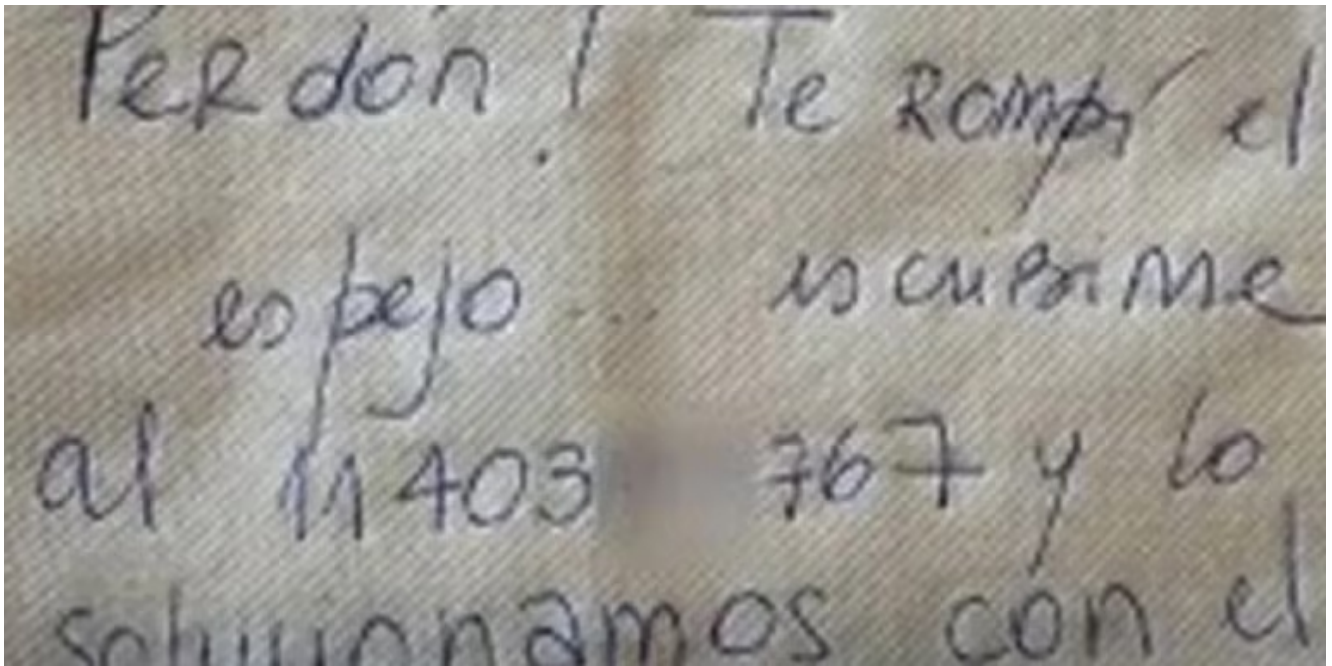 Perdón! Te Rompí el
espejo ... escribime
al 11403 767 y lo
solucionamos con el